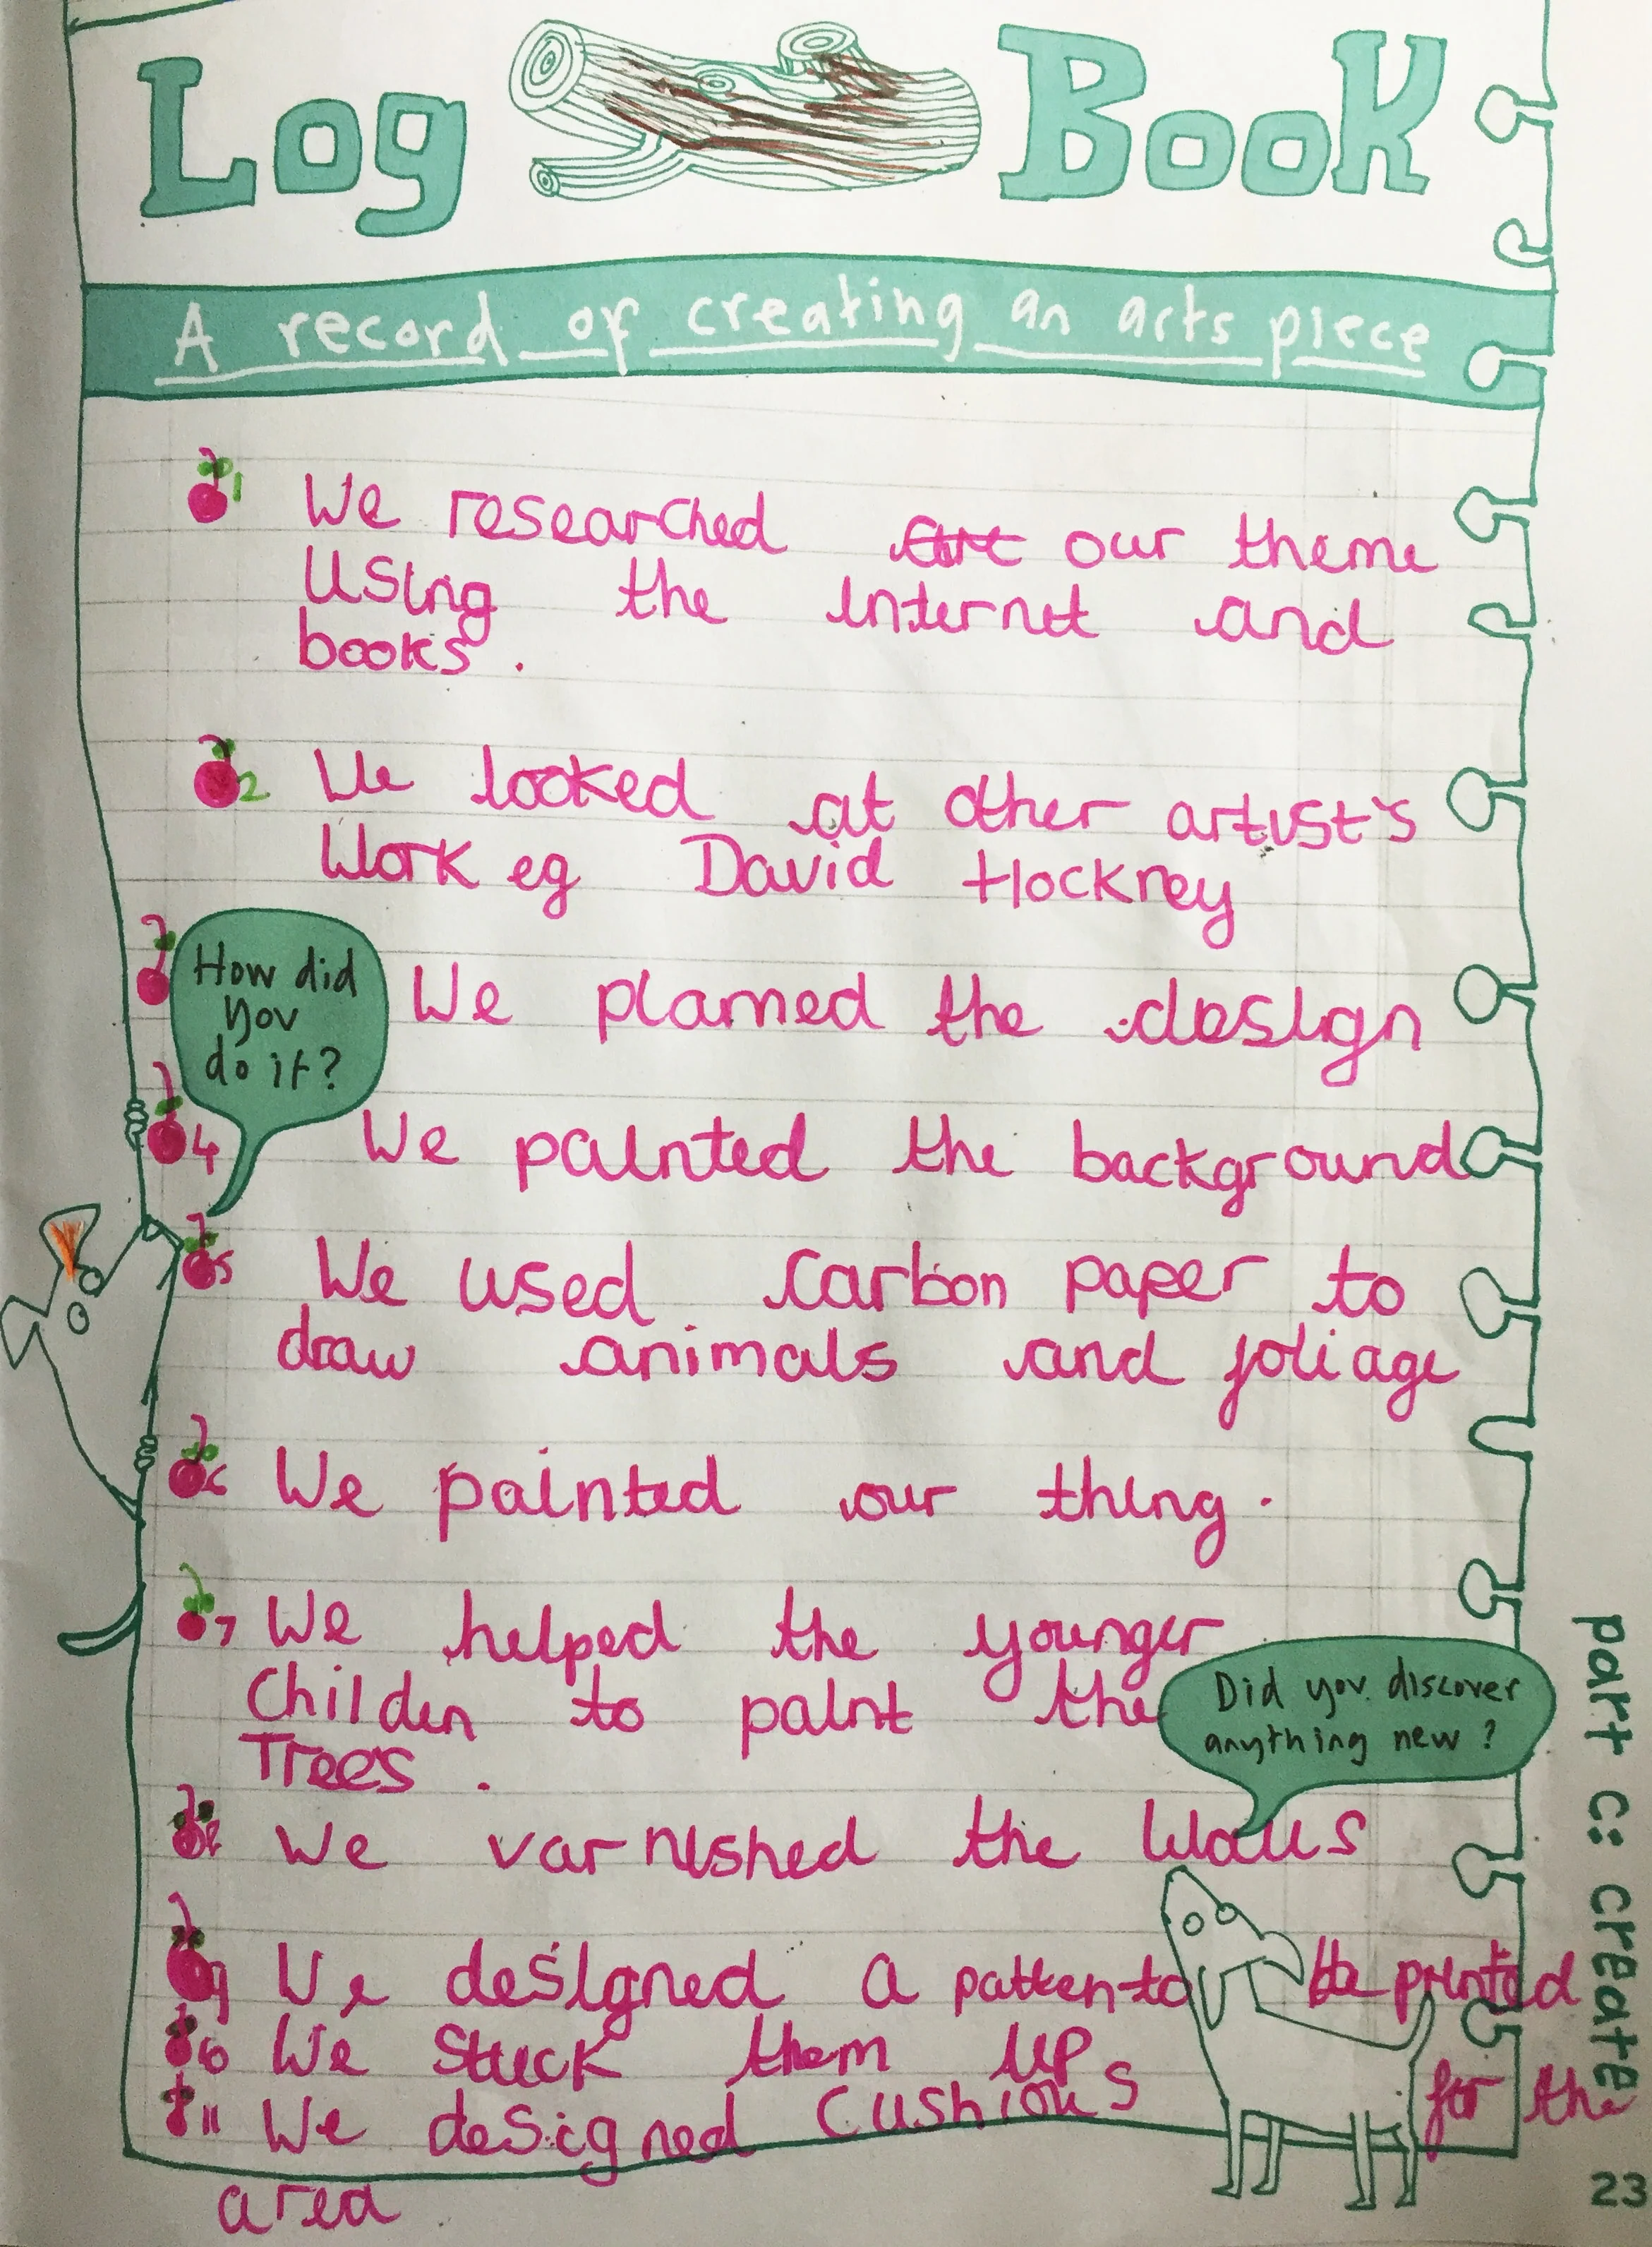 Log Book
A record of creating an arts piece
1 We researched our theme
using the internet and
books.
2 We looked at other artist's
work eg David Hockney
How did
you
do it?
We planned the design
4 We painted the background
5 We used carbon paper to
draw animals and foliage
6 We painted our thing.
7 We helped the younger
Childen to paint the
Trees.
Did you discover
anything new?
8 We varnished the walls
9 We designed a patten to be printed
10 We stuck them up
11 We designed cushions for the
area
part c: create
23